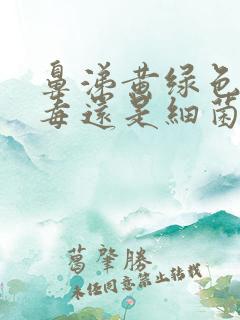 鼻涕黄绿色
毒还是細菌
葛肇勝
未经同意禁止转载